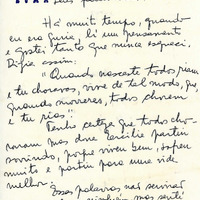 Há muito tempo, quando
eu era guria, li um pensamento
e gostei tanto que nunca esqueci.
Dizia assim:
"Quando nasceste todos riam
e tu choravas, vive de tal modo, que,
quando morreres, todos chorem
e tu rias."
Tenho certeza que todo cho-
raram mas dne Cecilia partiu
sorrindo, porque viveu bem, sofreu
muito e partiu para uma vida
melhor.
Essas palavras não servirão
mas senti